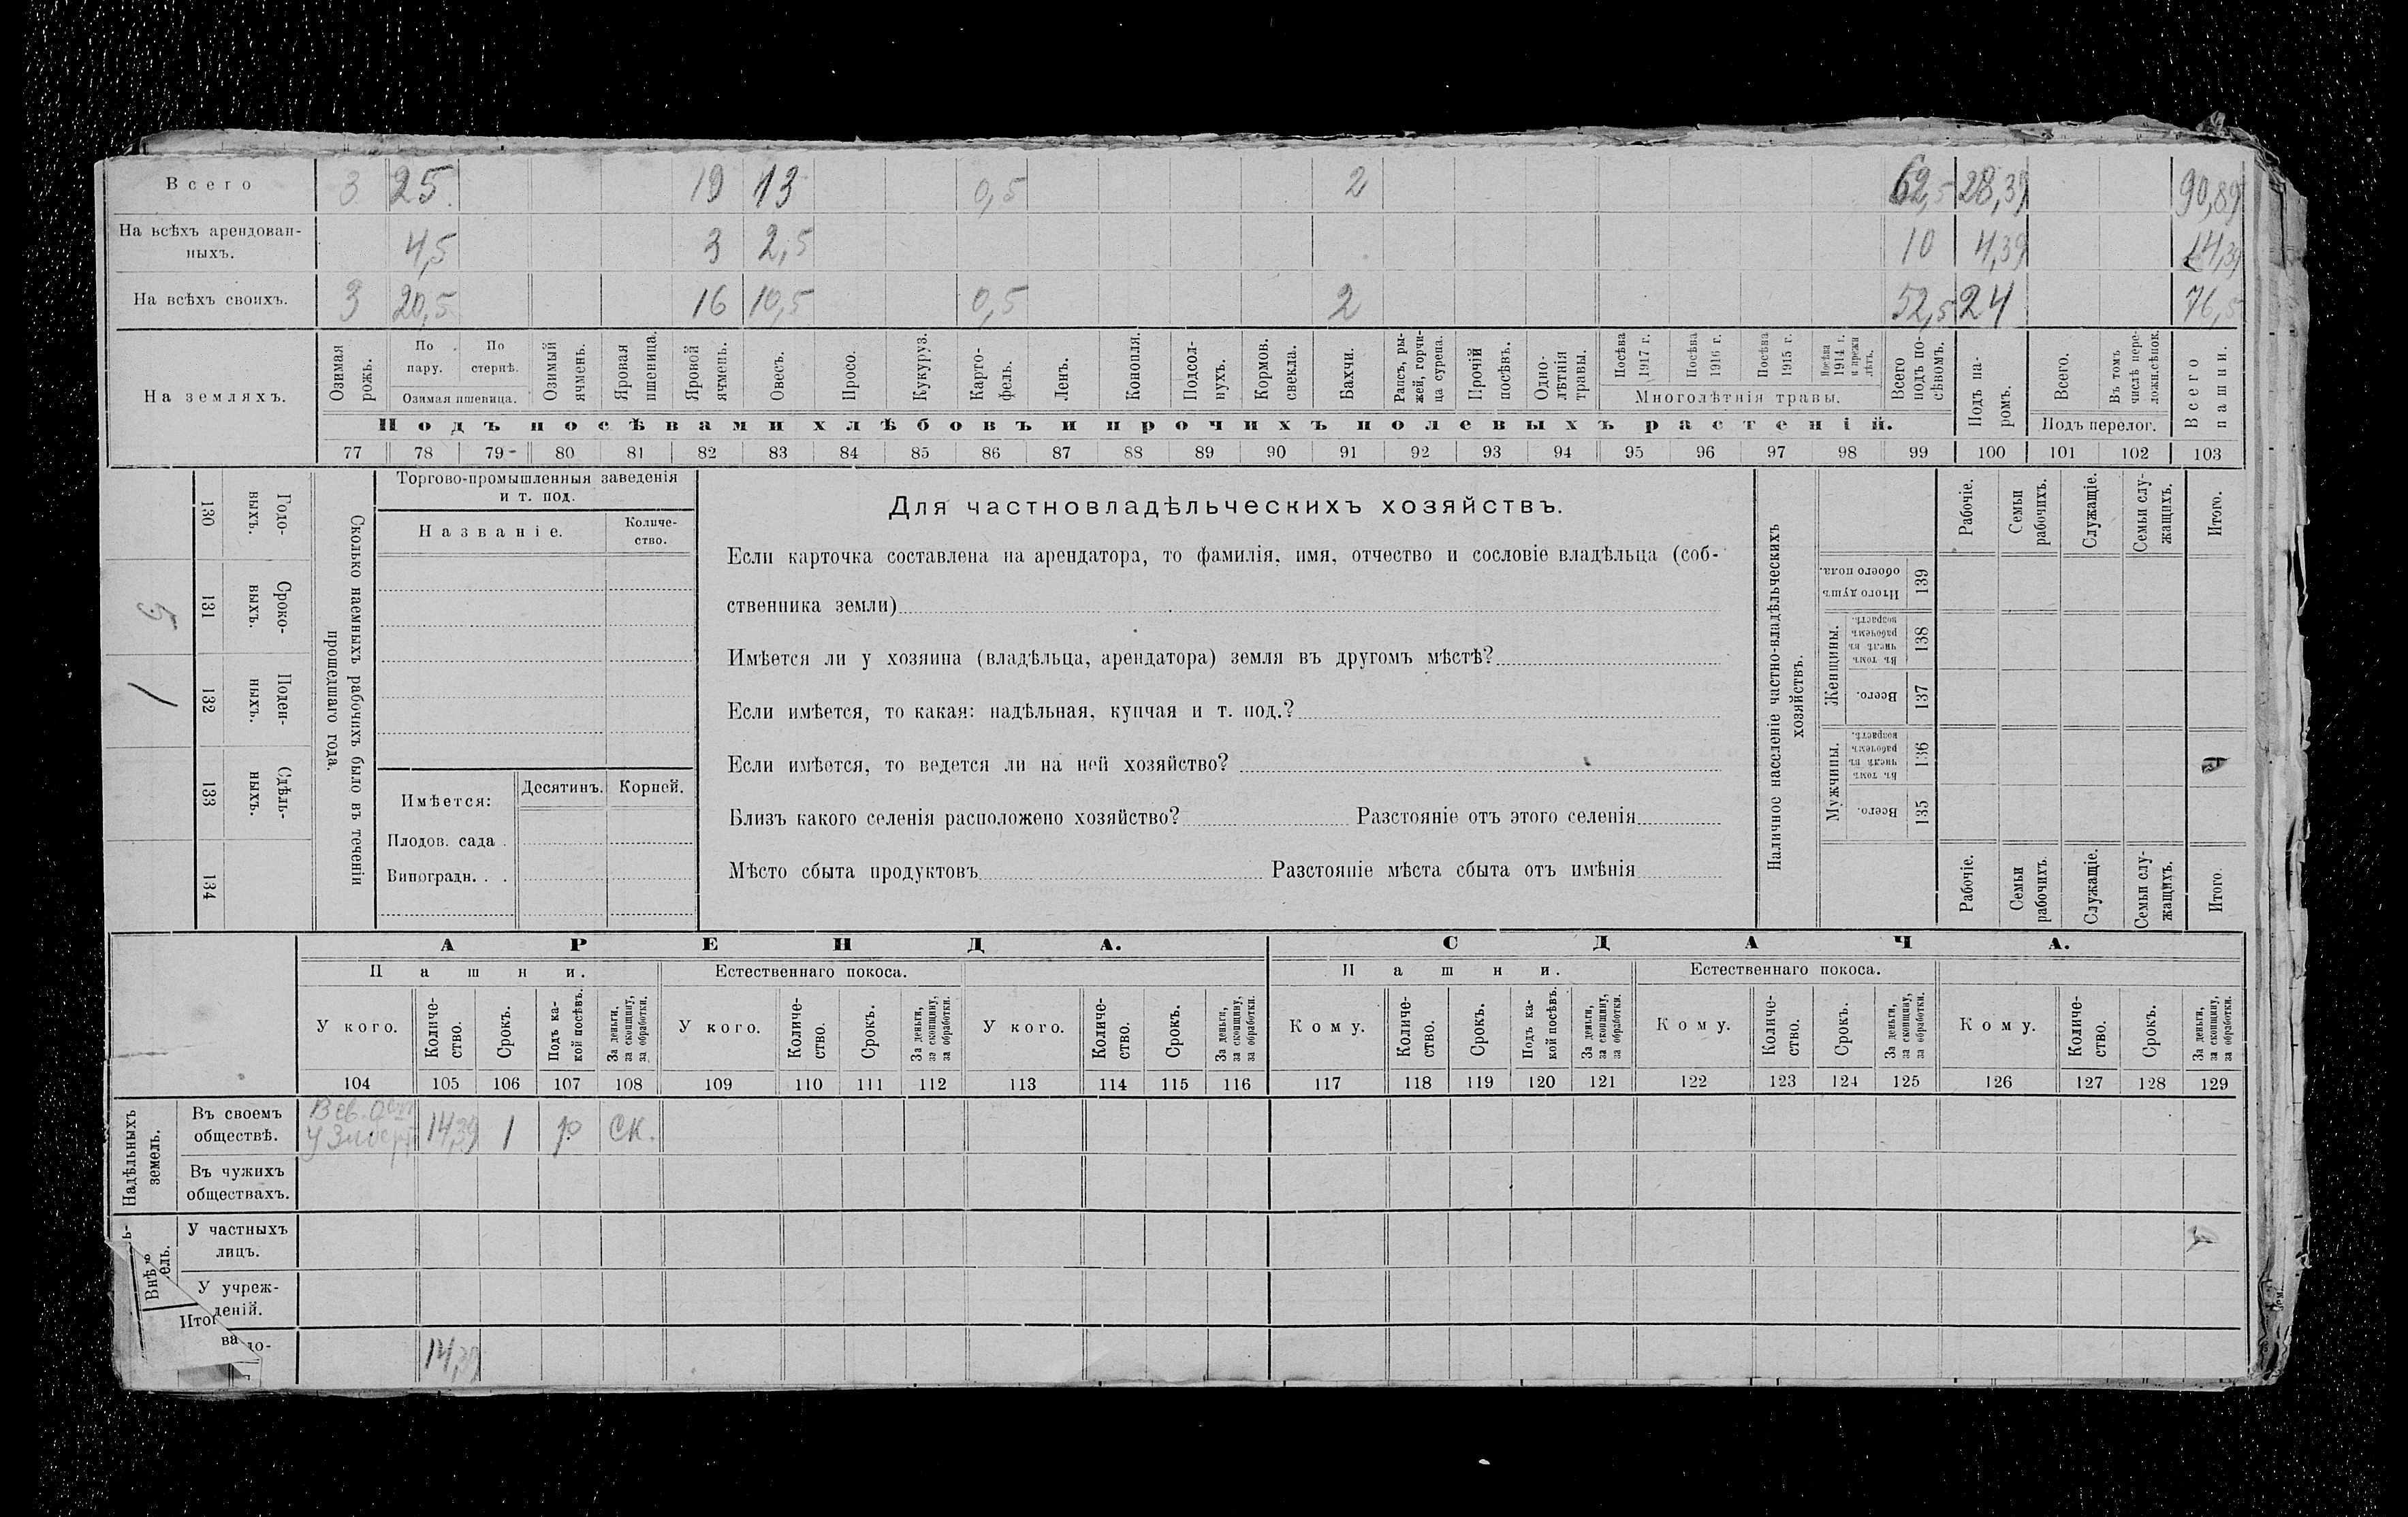 Всего 3 25 19 13 0,5 2 62,5 28,39 90,89
На всѣхъ арендован-
ныхъ. 4,5 3 2,5 10 4,39 14,39
На всѣхъ своихъ. 3 20,5 16 10,5 0,5 2 52,5 24 76,5
На земляхъ.
Озимая рожь.
По пару.
По стернѣ.
Озимая пшеница.
Озимый ячмень.
Яровая пшеница.
Яровой ячмень.
Овесъ.
Просо.
Кукуруз.
Карто-
фель.
Ленъ.
Конопля.
Подсол-
нухъ.
Кормов. свекла.
Бахчи.
Рапсъ, ры-
жей, горчи-
ца сурепа.
Прочій посѣвъ.
Одно-
лѣтнія травы.
Посѣва 1917 г.
Посѣва 1916 г.
Посѣва 1915 г.
Посѣва 1914 г. и прежн лѣтъ.
Многолѣтнія травы.
Всего подъ по-
сѣвомъ.
Подъ па-
ромъ.
Всего.
Въ томъ числѣ пере-
ложн.сѣнок.
Подъ перелог.
Всего пашни.
Подъ посѣвами хлѣбовъ и прочихъ полевыхъ растеній.
77 78 79 80 81 82 83 84 85 86 87 88 89 90 91 92 93 94 95 96 97 98 99 100 101 102 103
Годо-
выхъ.
130
Сроко-
выхъ.
131
5
Поден-
ныхъ.
132
1
Сдѣль-
ныхъ.
133
134
Сколько наемныхъ рабочихъ было въ теченіи
прошедшаго года.
Торгово-промышленныя заведенія
и т. под.
Названіе.
Количе-
ство.
Имѣется:
Десятинъ.
Корней.
Плодов. сада .
Виноградн. . .
Для частновладѣльческихъ хозяйствъ.
Если карточка составлена на арендатора, то фамилія, имя, отчество и сословіе владѣльца (соб-
ственника земли)
Имѣется ли у хозяина (владѣльца, арендатора) земля въ другомъ мѣстѣ?
Если имѣется, то какая: надѣльная, купчая и т. под.?
Если имѣется, то ведется ли на ней хозяйство?
Близъ какого селенія расположено хозяйство? Разстояніе отъ этого селенія
Мѣсто сбыта продуктовъ Разстояніе мѣста сбыта отъ имѣнія
Наличное населеніе частно-владѣльческихъ
хозяйствъ.
Рабочіе.
Семьи рабочихъ.
Служащіе.
Семьи слу-
жащихъ.
Итого.
Итого душъ обоего пола.
139
Женщины.
Въ томъ числѣ въ рабочемъ возрастѣ.
138
Всего.
137
Мужчины.
Въ томъ числѣ въ рабочемъ возрастѣ.
136
Всего.
135
Рабочіе.
Семьи рабочихъ.
Служащіе.
Семьи слу-
жащихъ.
Итого.
АРЕНДА. СДАЧА.
Пашни. Естественнаго покоса. Пашни. Естественнаго покоса.
У кого.
Количе-
ство.
Срокъ.
Подъ ка-
кой посѣвъ.
За деньги, за скопщину, за обработки.
У кого.
Количе-
ство.
Срокъ.
За деньги, за скопщину, за обработки.
У кого.
Количе-
ство.
Срокъ.
За деньги, за скопщину, за обработки.
Кому.
Количе-
ство.
Срокъ.
Подъ ка-
кой посѣвъ.
За деньги, за скопщину, за обработки.
Кому.
Количе-
ство.
Срокъ.
За деньги, за скопщину, за обработки.
Кому.
Количе-
ство.
Срокъ.
За деньги, за скопщину, за обработки.
104 105 106 107 108 109 110 111 112 113 114 115 116 117 118 119 120 121 122 123 124 125 126 127 128 129
Надѣльныхъ земель.
Въ своемъ
обществѣ. 14,39 1 р ск.
Въ чужихъ
обществахъ.
Внѣ
ель.
У частныхъ
лицъ.
У учреж-
деній.
Итог
ва
до-
14,39